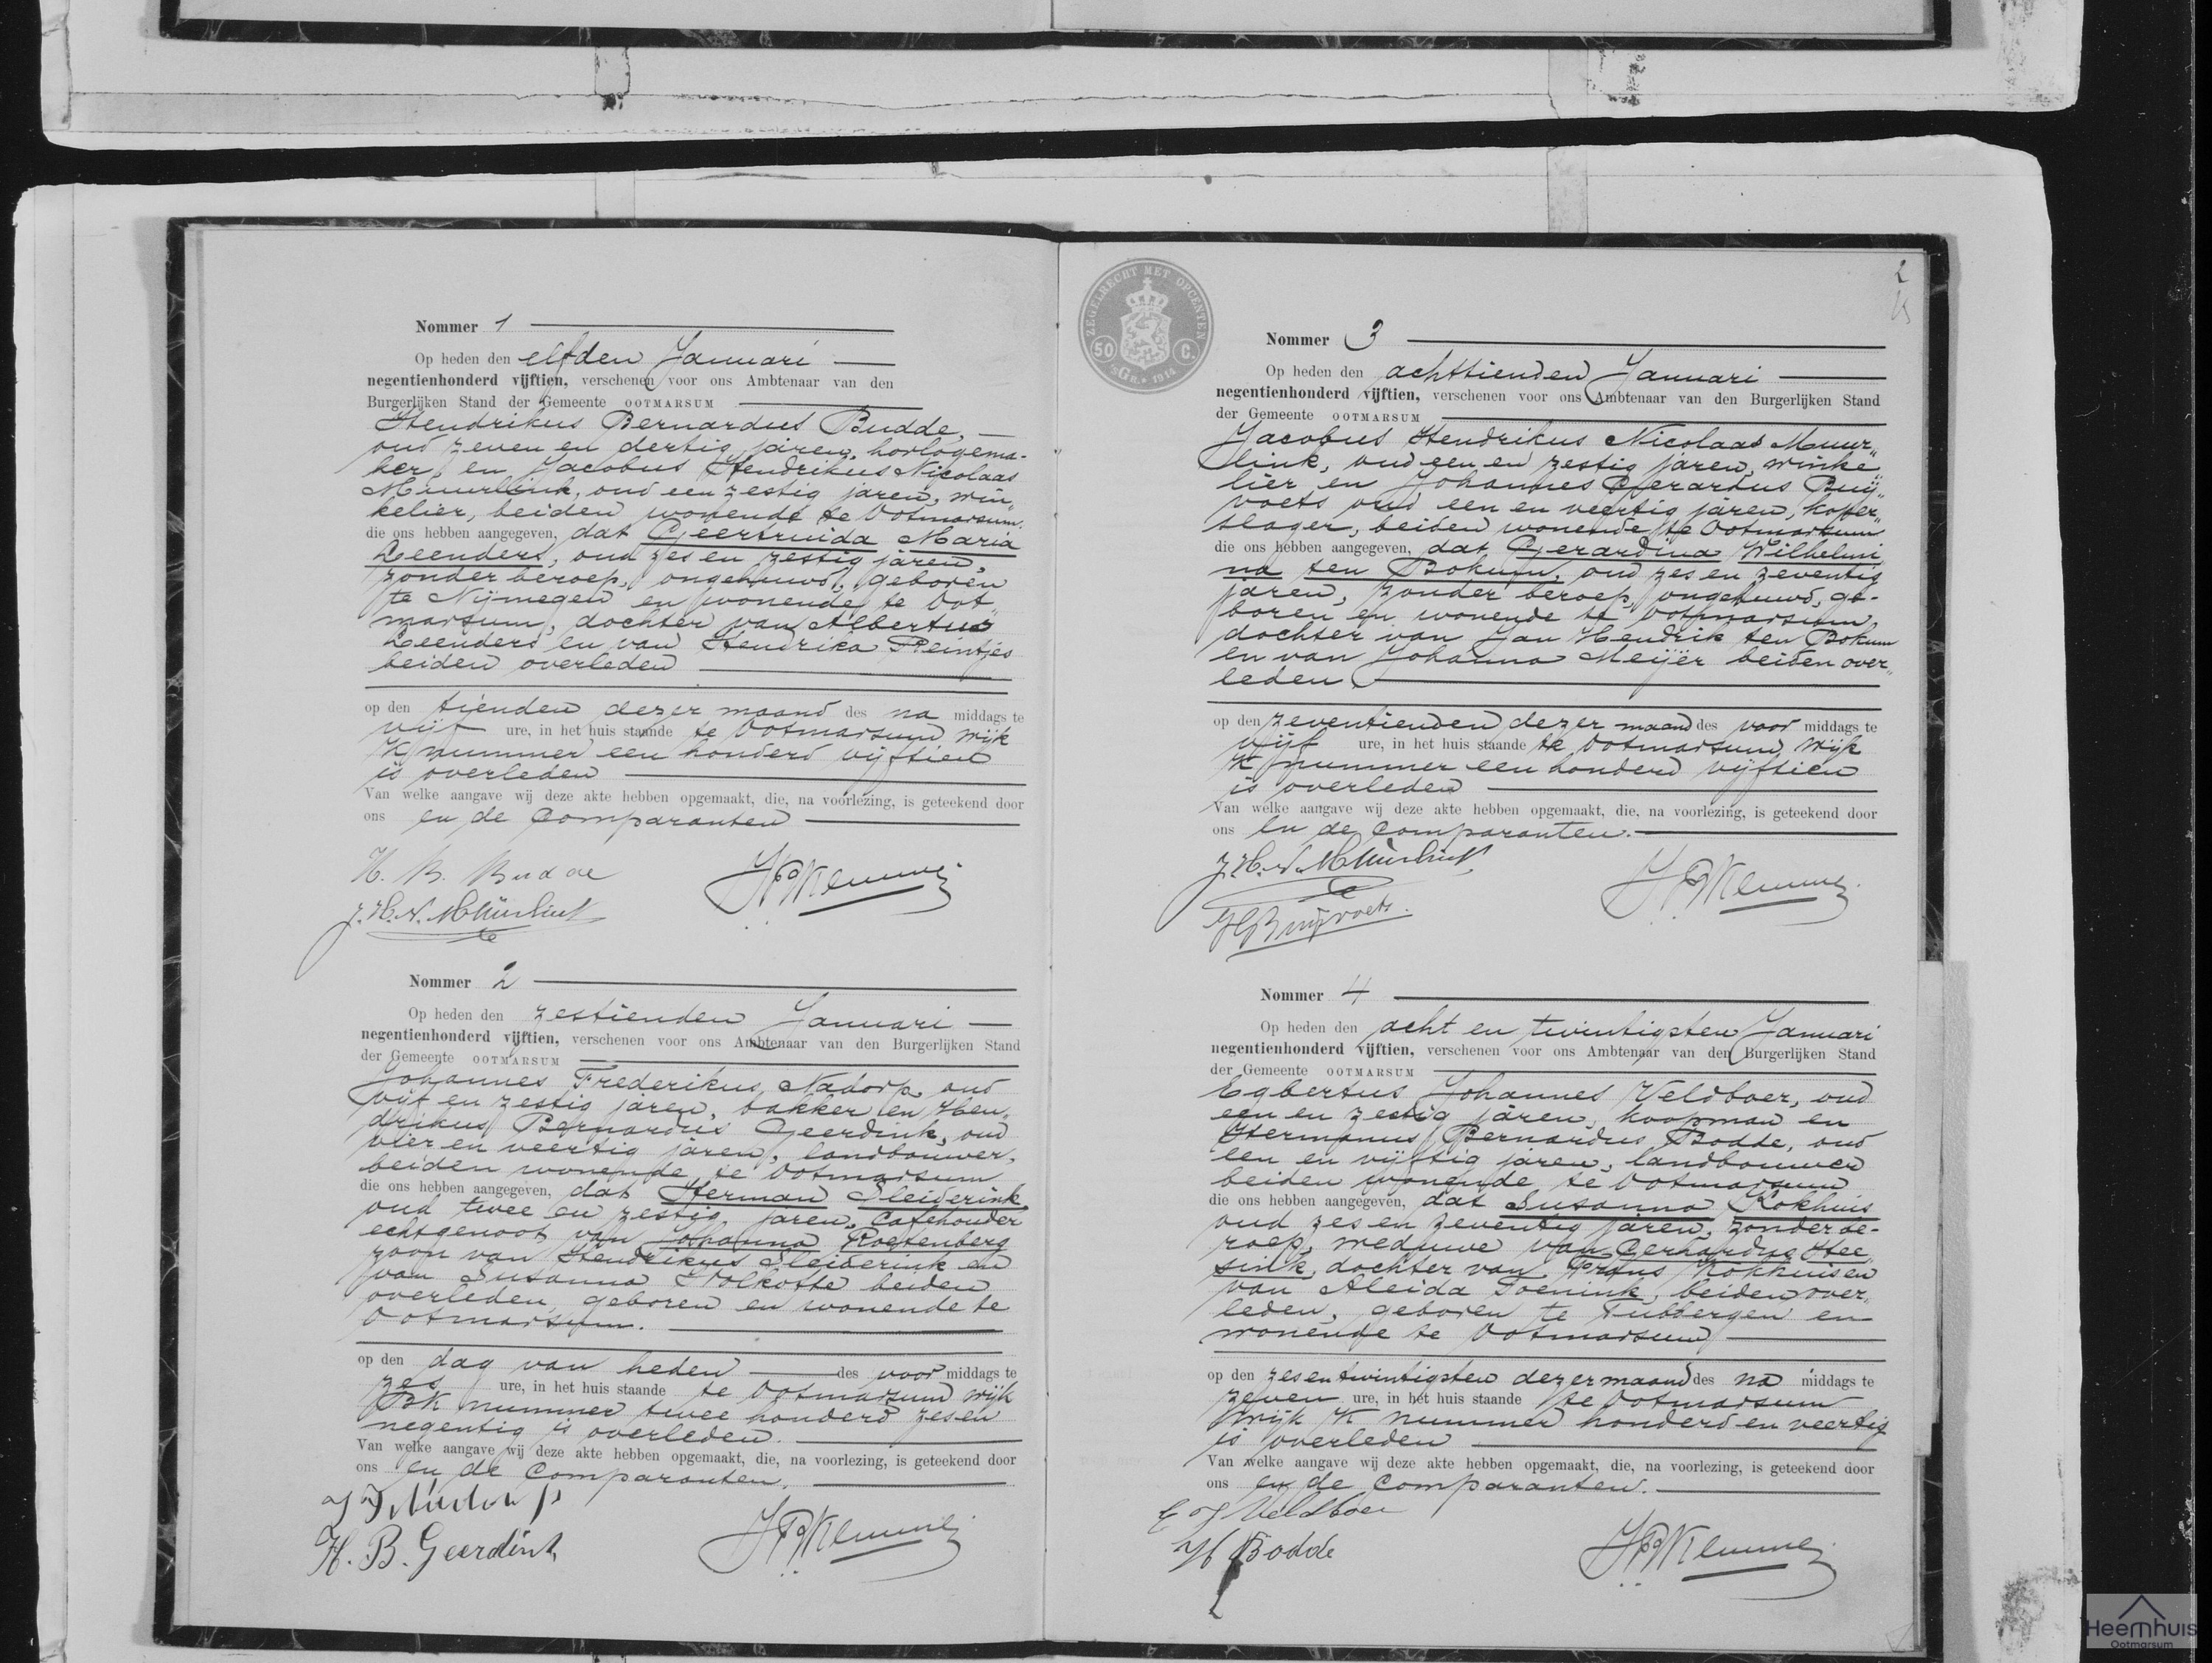 Nommer 1
Op heden den elfden Januari
negentienhonderd vijftien, verschenen voor ons Ambtenaar van den
Burgerlijken Stand der Gemeente OOTMARSUM
Hendrikus Bernardus Budde,
oud zeven en dertig jaren, horlogema-
ker, en Jacobus Hendrikus Nicolaas
Muurlink, oud een zestig jaren, win„
kelier, beiden wonende te Ootmarsum.
die ons hebben aangegeven, dat Geertruida Maria
Leenders, oud zes en zestig jaren,
zonder beroep, ongehuwd, geboren
te Nijmegen en wonende te Oot„
marsum, dochter van Albertus
Leenders en van Hendrika Reintjes
beiden overleden
op den tienden dezer maand des na middags te
vijf ure, in het huis staande te Ootmarsum wijk
K nummer een honderd vijftien
is overleden
Van welke aangave wij deze akte hebben opgemaakt, die, na voorlezing, is geteekend door
ons en de Comparanten
H. B. Budde
J. H. N. Muurlink
Nommer 2
Op heden den zestienden Januari
negentienhonderd vijftien, verschenen voor ons Ambtenaar van den Burgerlijken Stand
der Gemeente OOTMARSUM
Johannes Frederikus Nadorp, oud
vijf en zestig jaren, bakker en Hen„
drikus Bernardus Geerdink, oud
vier en veertig jaren, landbouwer,
beiden wonende te Ootmarsum
die ons hebben aangegeven, dat Herman Sleiderink,
oud twee en zestig jaren, Cafehouder
echtgenoot van Johanna Roesenberg
zoon van Hendrikus Sleiderink en
van Susanna Stolkotte beiden
overleden, geboren en wonende te
Ootmarsum.
op den dag van heden des voor middags te
zes ure, in het huis staande te Ootmarsum wijk
BK nummer twee honderd zes en
negentig is overleden.
Van welke aangave wij deze akte hebben opgemaakt, die, na voorlezing, is geteekend door
ons en de Comparanten.
J F Nadorp
H. B. Geerdink
ZEGELRECHT MET OPCENTEN
50 C.
'sGR. 1914
2
Nommer 3
Op heden den achttienden Januari
negentienhonderd vijftien, verschenen voor ons Ambtenaar van den Burgerlijken Stand
der Gemeente OOTMARSUM
Jacobus Hendrikus Nicolaas Muur„
link, oud een en zestig jaren, winke„
lier en Johannes Gerardus Buij„
voets oud een en veertig jaren, koper„
slager, beiden wonende te Ootmarsum
die ons hebben aangegeven, dat Gerardina Wilhelmi
na ten Bokum, oud zes en zeventig
jaren, zonder beroep, ongehuwd, ge-
boren en wonende te Ootmarsum,
dochter van Jan Hendrik ten Bokum
en van Johanna Meijer beiden over„
leden
op den zeventienden dezer maand des voor middags te
vijf ure, in het huis staande te Ootmarsum, wijk
K nummer een honderd vijftien
is overleden
Van welke aangave wij deze akte hebben opgemaakt, die, na voorlezing, is geteekend door
ons en de Comparanten.
J. H. N. Muurlink
JG Buijvoets.
Nommer 4
Op heden den acht en twintigsten Januari
negentienhonderd vijftien, verschenen voor ons Ambtenaar van den Burgerlijken Stand
der Gemeente OOTMARSUM
Egbertus Johannes Veldboer, oud
een en zestig jaren, koopman en
Hermannus Bernardus Bodde, oud
een en vijftig jaren, landbouwer
beiden wonende te Ootmarsum
die ons hebben aangegeven, dat Susanna Kokhuis
oud zes en zeventig jaren, zonder be-
roep, weduwe van Gerhardus Hee„
sink, dochter van Frans Kokhuis en
van Aleida Toenink, beiden over„
leden, geboren te Tubbergen en
wonende te Ootmarsum
op den zesentwintigsten dezer maand des na middags te
zeven ure, in het huis staande te Ootmarsum
wijk K nummer honderd en veertig
is overleden
Van welke aangave wij deze akte hebben opgemaakt, die, na voorlezing, is geteekend door
ons en de Comparanten.
E J Veldboer
H Bodde
Heemhuis
Ootmarsum